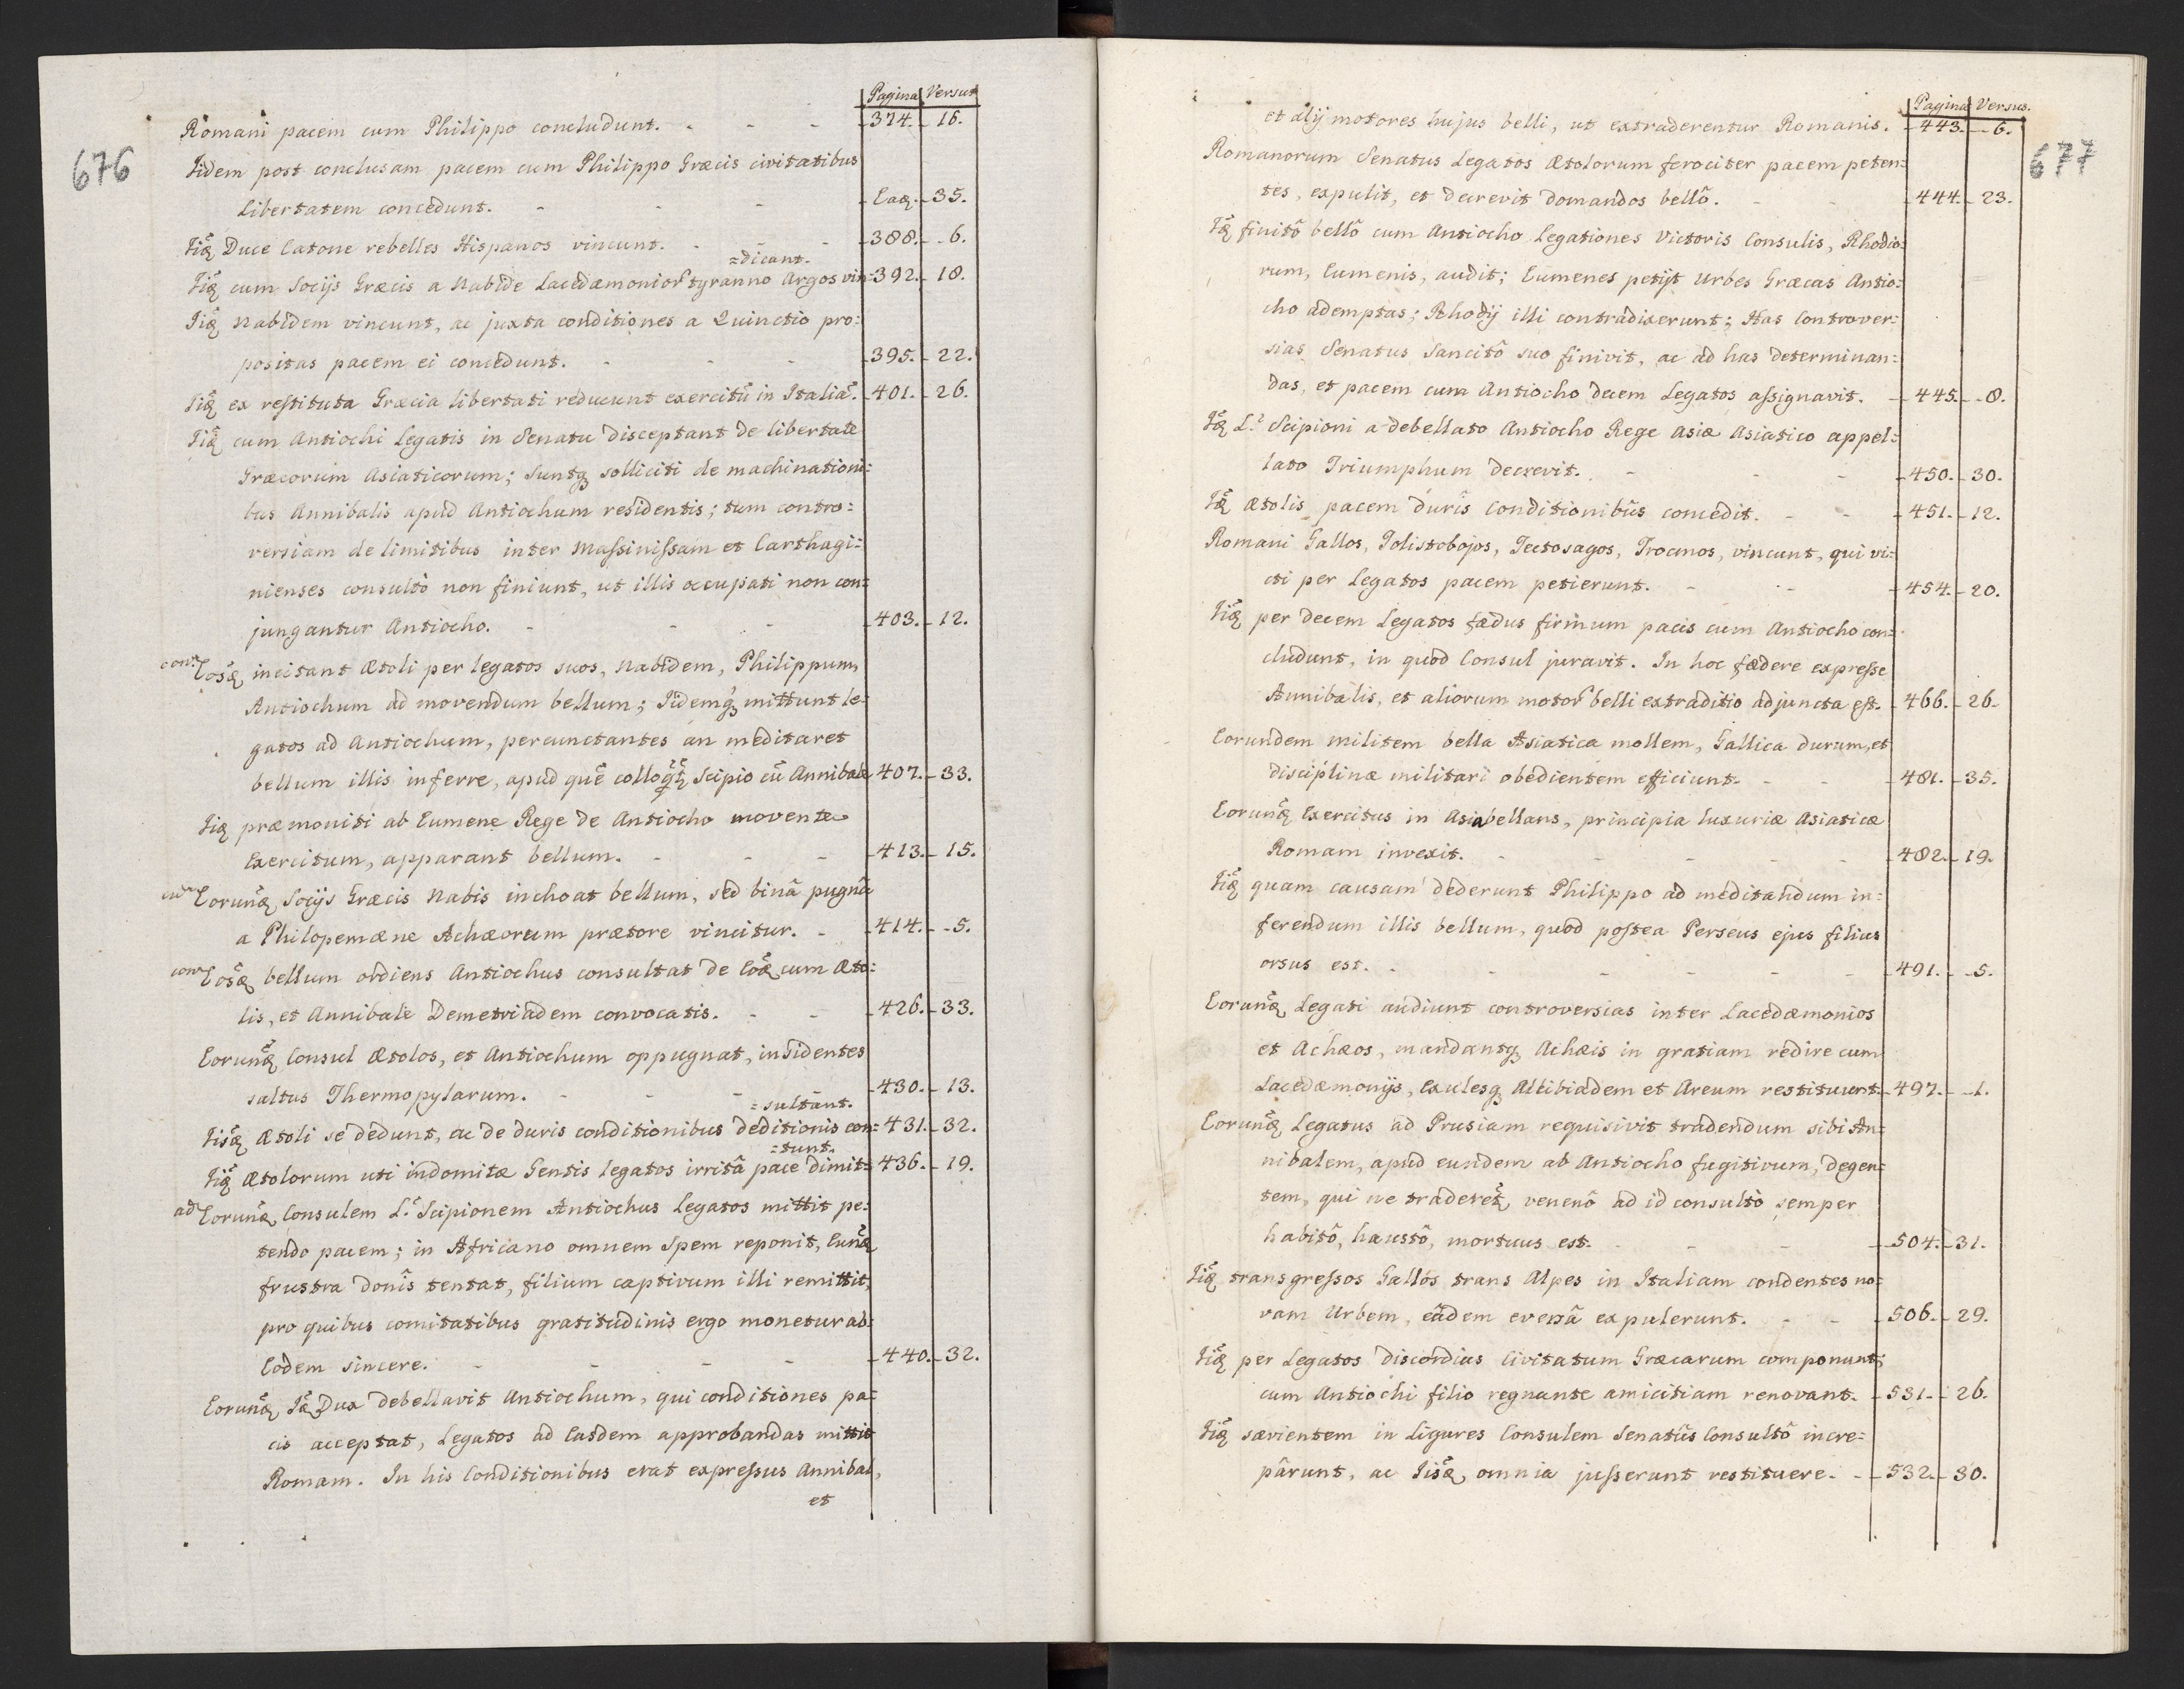 Pagina Versus
Romani pacem cum Philippo concludunt. - - - 374. - 16.
676
Iidem post conclusam pacem cum Philippo Græcis civitatibus
Libertatem concedunt. - - - Eaq̃. - 35.
Iiq̃ Duce Catone rebelles Hispanos vincunt. - - - 388. - 6.
=dicant.
Iiq̃ cum Socijs Græcis a Nabide Lacedæmonior tyranno Argos vin= 392. - 18.
Iiq̃ Nabidem vincunt, ac juxta conditiones a Quinctio pro:
positas pacem ei concedunt. - - - 395. - 22.
Iiq̃ ex restituta Græcia libertati reducunt exercitũ in Italiã. 401. - 26.
Iiq̃ cum Antiochi Legatis in Senatu disceptant de libertate
Græcorum Asiaticorum; Suntq3 solliciti de machinationi:
bus Annibalis apud Antiochum residentis; tum contro:
versiam de limitibus inter Massinissam et Carthagi:
nienses consultò non finiunt, ut illis occupati non con:
jungantur Antiocho. - - - 403. - 12.
conᵃ Eosq̃ incitant Ætoli per legatos suos, Nabidem, Philippum,
Antiochum ad movendum bellum; Iidemq3 mittunt le:
gatos ad Antiochum, percunctantes an meditaret
bellum illis inferre, apud quẽ colloqt̃ Scipio cũ Annibale 407. - 33.
Iiq̃ præmoniti ab Eumene Rege de Antiocho movente
Exercitum, apparant bellum. - - - 413. - 15.
Eorunq̃ Socijs Græcis Nabis inchoat bellum, sed binâ pugnâ
a Philopemæne Achæorum prætore vincitur. - 414. - 5.
conᵃ Eosq̃ bellum ordiens Antiochus consultat de Eoq̃ cum Æto:
lis, et Annibale Demetriadem convocatis. - - 426. - 33.
Eorunq̃ Consul Ætolos, et Antiochum oppugnat, insidentes
saltus Thermopylarum. - - - 430. - 13.
=sultant.
Iisq̃ Ætoli se dedunt, ac de duris conditionibus deditionis con= 431. - 32.
=tunt.
Iiq̃ Ætolorum uti indomitæ Gentis legatos irritâ pace dimit= 436. - 19.
ad Eorunq̃ Consulem L. Scipionem Antiochus Legatos mittit pe:
tendo pacem; in Africano omnem Spem reponit, Eunq̃
frustra donîs tentat, filium captivum illi remittit,
pro quibus comitatibus gratitudinis ergo monetur ab
Eodem sincere. - - - - 440. - 32.
Eorunq̃ Iq̃ Dux debellavit Antiochum, qui conditiones pa:
cis acceptat, Legatos ad Easdem approbandas mittit
Romam. In his Conditionibus erat expressus Annibal,
et
Pagina Versus.
et alij motores hujus belli, ut extraderentur Romanis. - 443. - 6.
677
Romanorum Senatus Legatos Ætolorum ferociter pacem peten:
tes, expulit, et decrevit domandos bellô. - - 444. - 23.
Iq̃ finitô bellô cum Antiocho Legationes Victoris Consulis, Rhodio:
rum, Eumenis, audit; Eumenes petijt Urbes Græcas Antio:
cho ademptas; Rhodij illi contradixerunt; Has Controver:
sias Senatus Sancitô suo finivit, ac ad has determinan:
das, et pacem cum Antiocho decem Legatos assignavit. - 445. - 8.
Iq̃ L. Scipioni a debellato Antiocho Rege Asiæ Asiatico appel:
lato Triumphum decrevit. - - - 450. - 30.
Iq̃ Ætolis pacem duris Conditionibus concedit. - - 451. - 12.
Romani Gallos, Tolistobojos, Tectosagos, Trocmos, vincunt, qui vi:
cti per Legatos pacem petierunt. - - - 454. - 20.
Iiq̃ per decem Legatos fædus firmum pacis cum Antiocho con:
cludunt, in quod Consul juravit. In hoc fædere expresse
Annibalis, et aliorum motor belli extraditio adjuncta est. - 466. - 26.
Eorundem militem bella Asiatica mollem, Gallica durum, et
disciplinæ militari obedientem efficiunt. - - 481. - 35.
Eorunq̃ Exercitus in Asia bellans, principia luxuriæ Asiaticæ
Romam invexit. - - - - - 482. - 19.
Iiq̃ quam causam dederunt Philippo ad meditandum in:
ferendum illis bellum, quod postea Perseus ejus filius
orsus est. - - - - - 491. - 5.
Eorunq̃ Legati audiunt controversias inter Lacedæmonios
et Achæos, mandantq3 Achæis in gratiam redire cum
Lacedæmonijs, Exulesq3 Alcibiadem et Areum restituunt. - 497. - 1.
Eorunq̃ Legatus ad Prusiam requisivit tradendum sibi An:
nibalem, apud eundem ab Antiocho fugitivum, degen:
tem, qui ne traderet̃, venenô ad id consultò semper
habitô, haustô, mortuus est. - - - 504. - 31.
Iiq̃ transgressos Gallos trans Alpes in Italiam condentes no:
vam Urbem, eâdem eversâ expulerunt. - - 506. - 29.
Iiq̃ per Legatos discordias Civitatum Græcarum componunt;
cum Antiochi filio regnante amicitiam renovant. - 531. - 26.
Iiq̃ sævientem in Ligures Consulem Senatûs Consultô incre=
pârunt, ac Iisq̃ omnia jusserunt restituere. - - 532. - 30.